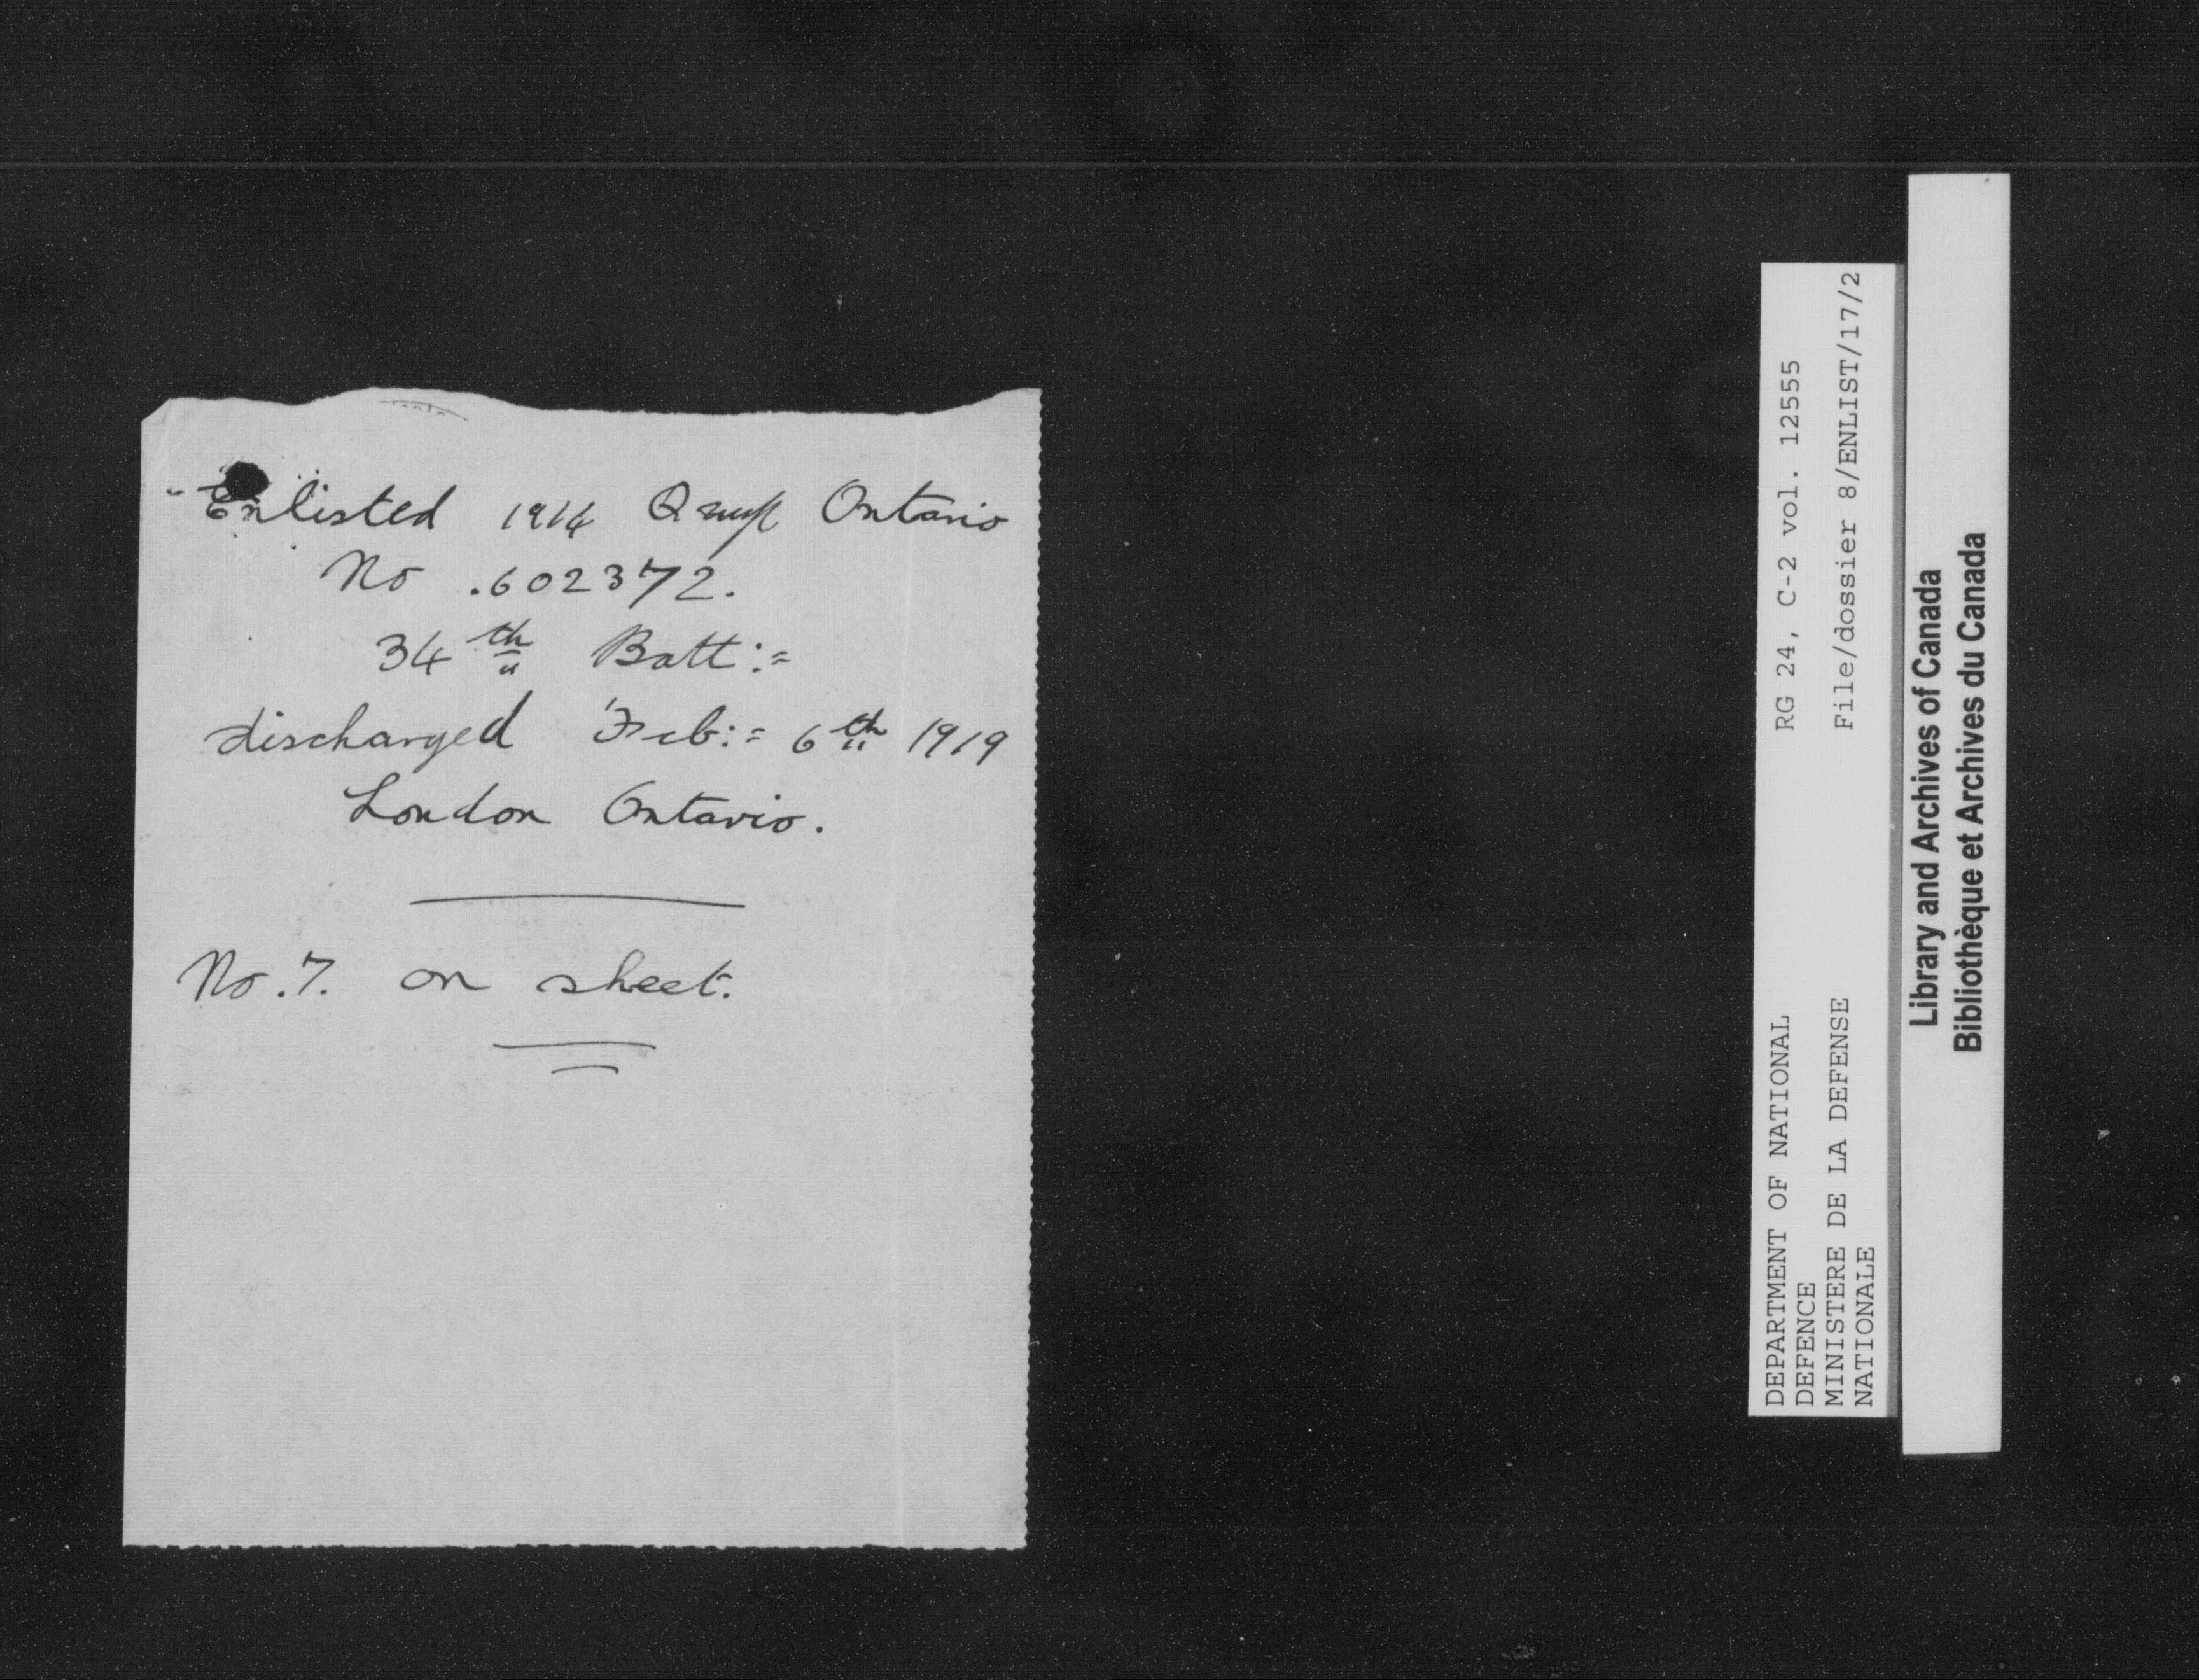 Enlisted 1914 Ontario
No .602372.
34th Batt:=
discharged Feb:= 6th 1919
London Ontario.
No.7. on sheet.
RG 24, C-2 vol. 12555
File/dossier 8/ENLIST/17/2
DEPARTMENT OF NATIONAL
DEFENCE
MINISTERE DE LA DEFENSE
NATIONALE
Library and Archives of Canada
Bibliothèque et Archives du Canada